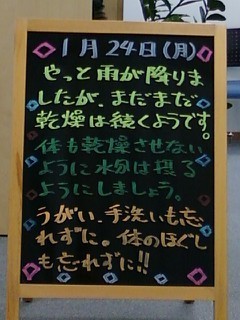 1月24日(月)
やっと雨が降りま
したが、まだまだ
乾燥は続くようです。
体も乾燥させない
ように水分は摂る
ようにしましょう。
うがい、手洗いも忘
れずに。体のほぐし
も忘れずに!!